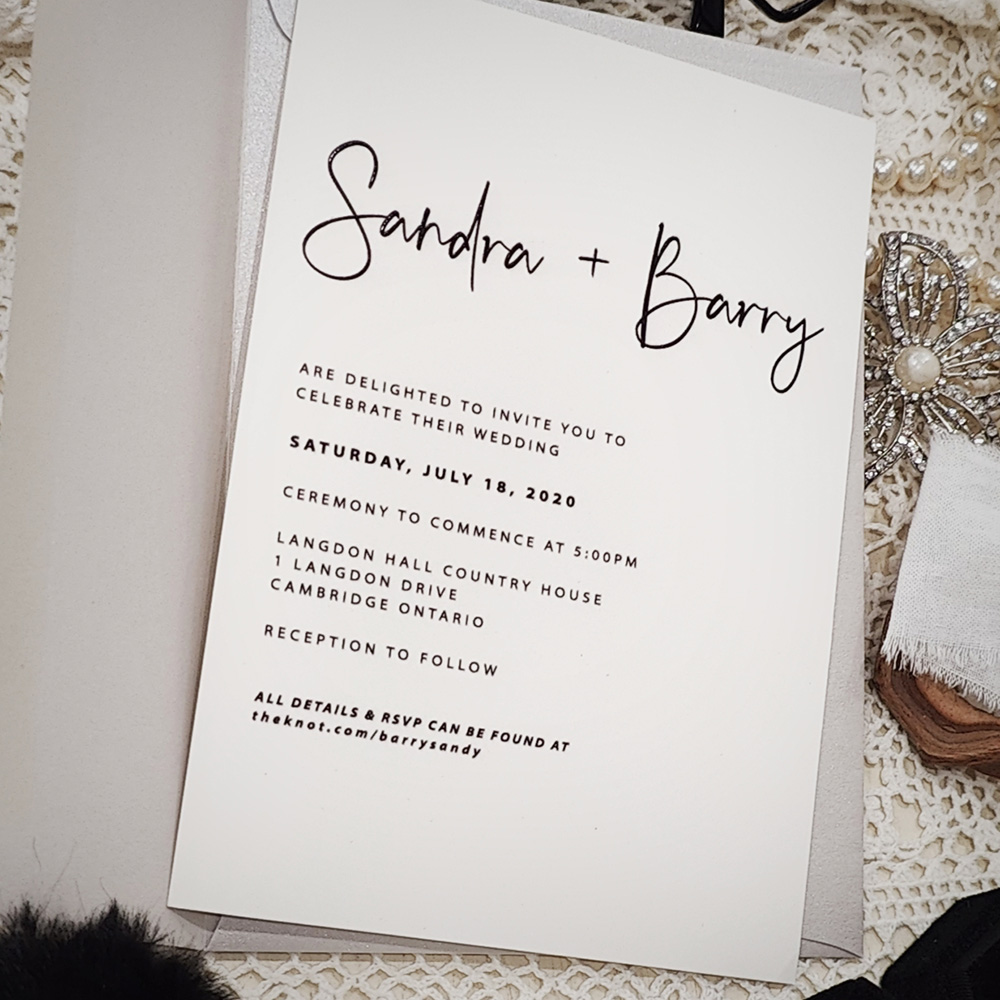 Sandra + Barry
ARE DELIGHTED TO INVITE YOU TO
CELEBRATE THEIR WEDDING
SATURDAY, JULY 18, 2020
CEREMONY TO COMMENCE AT 5:00PM
LANGDON HALL COUNTRY HOUSE
1 LANGDON DRIVE
CAMBRIDGE ONTARIO
RECEPTION TO FOLLOW
ALL DETAILS & RSVP CAN BE FOUND AT
theknot.com/barrysandy